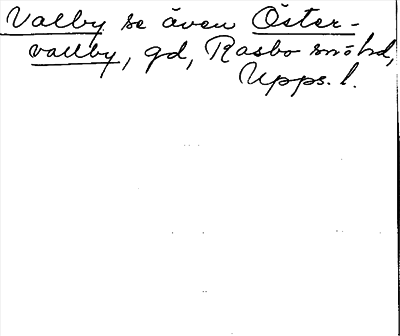 Valby se även Öster-
vallby, gd, Rasbo sn o hd,
Upps. l.